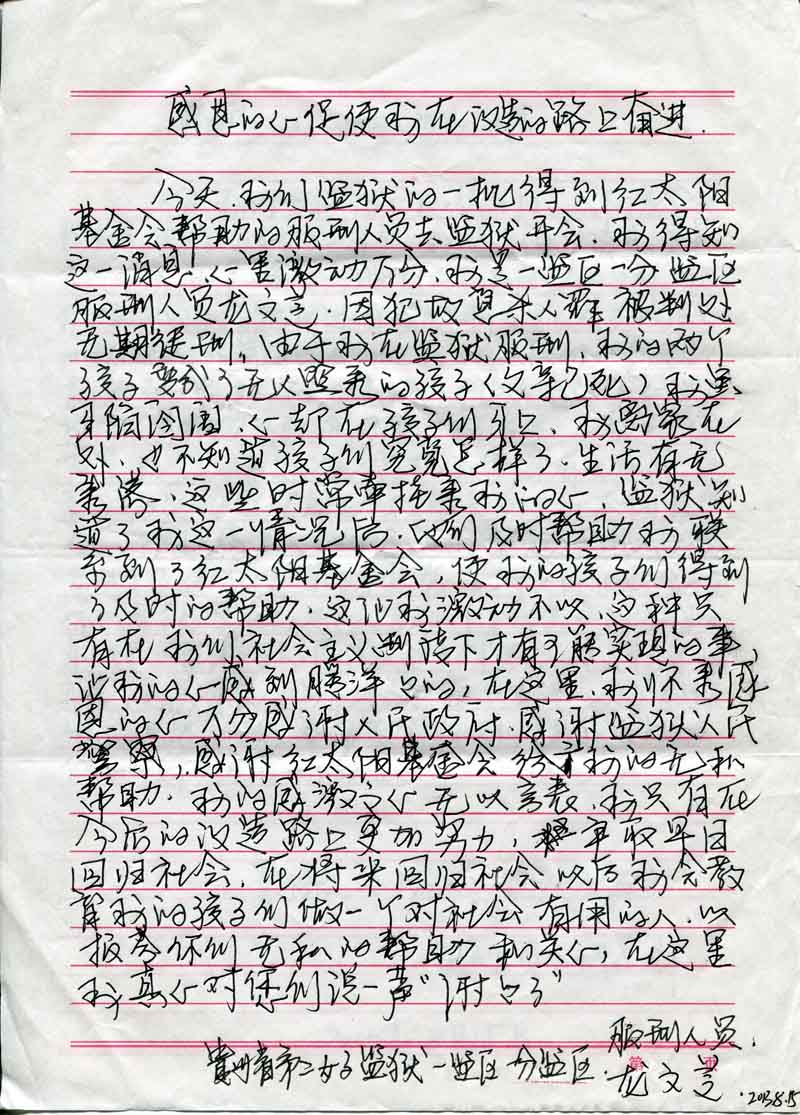 感恩的心促使我在改造的路上奋进.
今天.我们监狱的一批得到红太阳
基金会帮助的服刑人员去监狱开会.我得知
这一消息.心里激动万分.我是一监区一分监区
服刑人员龙文.因犯故意杀人罪 被判处
无期徒刑,由于我在监狱服刑.我的两个
孩子变成了无人照养的孩子(父亲已死)我虽
身陷囹圄.心却在孩子们身上.我家在
外.也不知道孩子们究竟怎样了.生活有无
着落.这些时常牵挂着我的心,监狱知
道了我这一情况后.他们及时帮助我联
系到了红太阳基金会,使我的孩子们得到
了及时的帮助.这让我激动不以.这种只
有在我们社会主义制度下才有可能实现的事,
让我的心感到暖洋口的,在这里.我怀着感
恩的心万分感谢人民政府.感谢监狱人民
警察,感谢红太阳基金会给予我的无私
帮助.我的感激之心无以言表.我只有在
今后的改造路上更加努力,争取早日
回归社会.在将来回归社会以后我会教
育我的孩子们做一个对社会有用的人.以
报答你们无私的帮助和关心,在这里
我真心对您们说一声"谢口了"
服刑人员.
贵州省第二女子监狱一监区一分监区.龙文
第 页
.2013.8.15